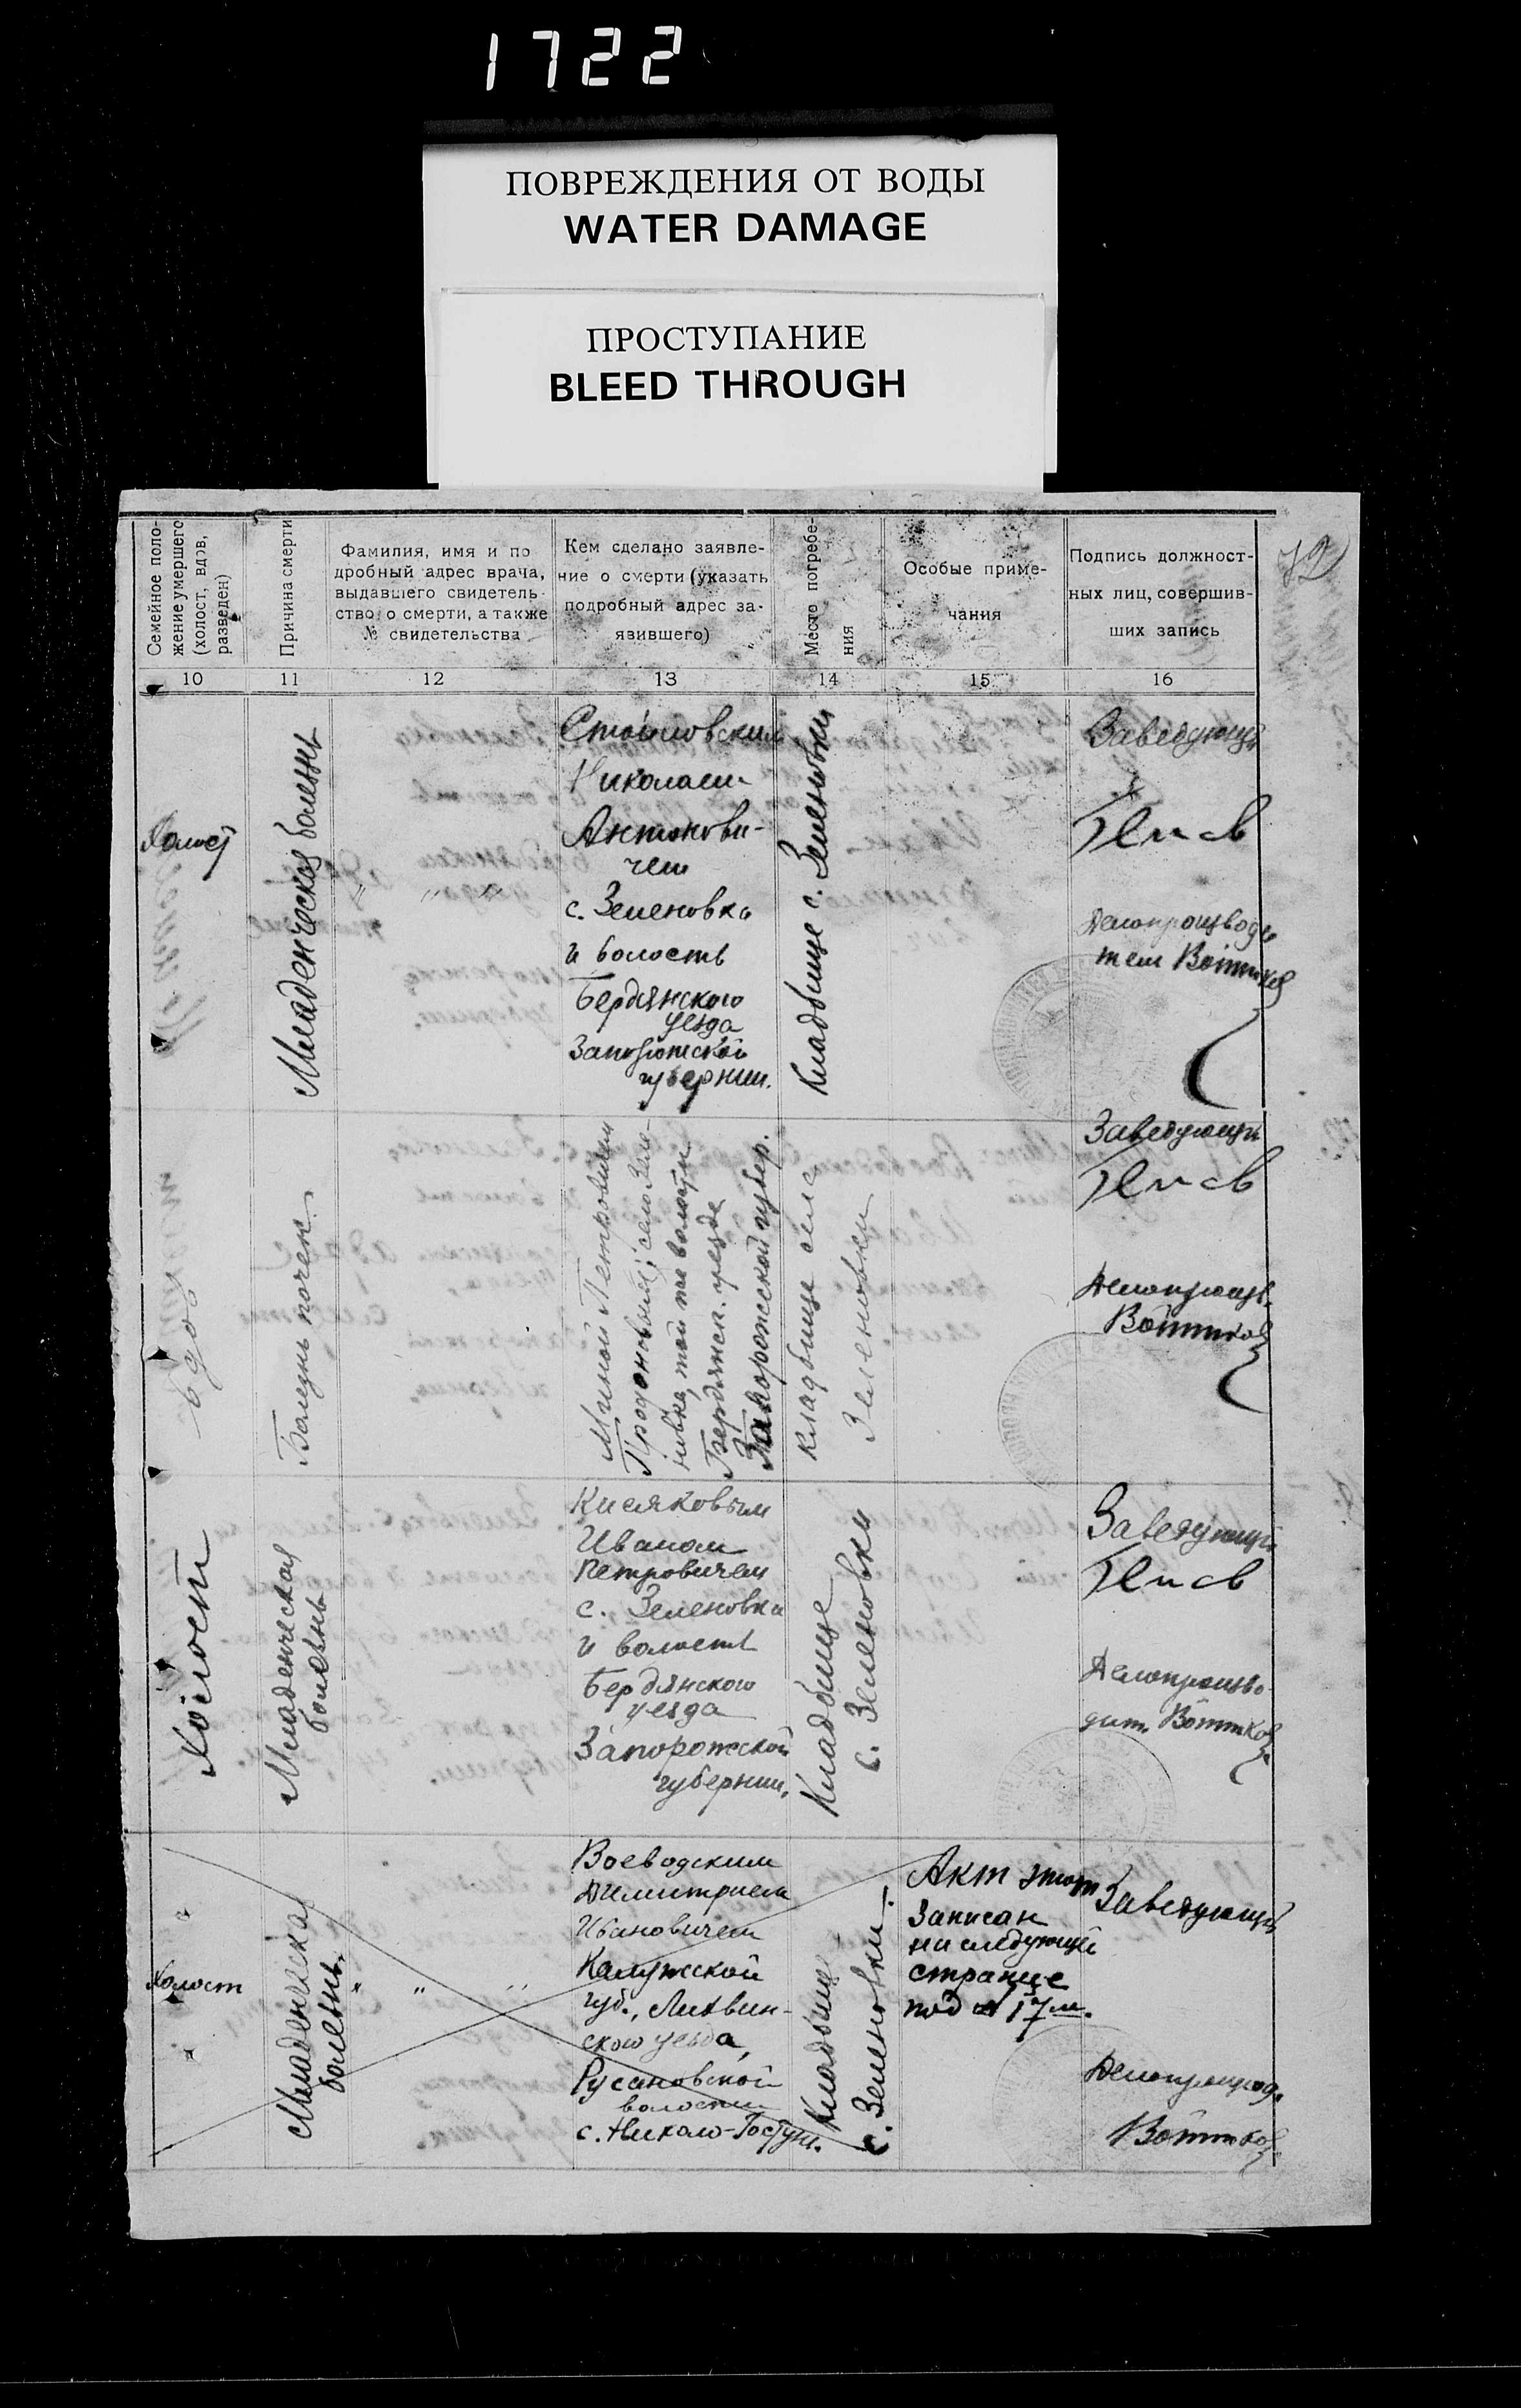 1722
ПОВРЕЖДЕНИЯ ОТ ВОДЫ
WATER DAMAGE
ПРОСТУПАНИЕ
BLEED THROUGH
Семейное поло-
жение умершего
(холост, вдов,
разведен)
Причина смерти
Фамилия, имя и по
дробный адрес врача,
выдавшего свидетель-
ство о смерти, а также
№ свидетельства
Кем сделано заявле-
ние о смерти (указать
подробный адрес за-
явившего)
Место погребе-
ния
Особые приме-
чания
Подпись должност-
ных лиц, совершив-
ших запись
10
11
12
13
14
15
16
Холост
Младенческая болезнь
" " "
Николаем
Антонови-
чем
с. Зеленовка
и волость
Бердянского
уезда
Запорожской
губернии.
Кладбище с. Зеленовки
Заведующий
Делопроизводи
тель
вдов
Болезнь почек
Миной Петровым
село Зеле-
новка, той же волости
Бердянск. уезда
Запорожской губер.
кладбище села
Зеленовки
Заведующий
Делопроизв.
Холост
Младенческая
болезнь
Кисяковым
Иваном
Петровичем
с. Зеленовка
и волость
Бердянского
уезда
Запорожской
губернии.
Кладбище
с. Зеленовки
Заведующий
Делопроизво-
дит.
Холост
Младенческая
болезнь.
" " "
Воеводским
Димитрием
Ивановичем
Калужской
губ., Лихвин-
ского уезда,
Русановской
волости
с. Николо-Гостун.
Кладбище
с. Зеленовки.
Акт этот
Записан
на следующей
странице
под № 17м.
Заведующий
Делопроизвод.